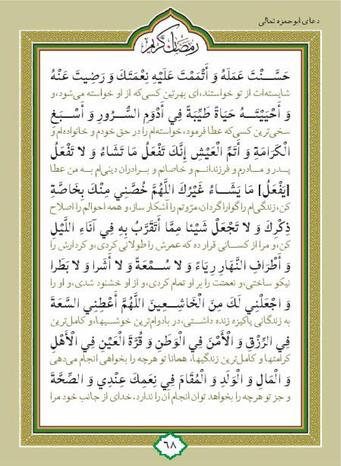 دعای ابوحمزه ثمالی
رمضان کریم
حَسَّنْتَ عَمَلَهُ وَ أَتْمَمْتَ عَلَيْهِ نِعْمَتَكَ وَ رَضِيتَ عَنْهُ
شایسته‌ات از تو خواستند، ای بهترین کسی‌که از او خواسته می‌شود، و
وَ أَحْيَيْتَهُ حَيَاةً طَيِّبَةً فِي أَدْوَمِ السُّرُورِ وَ أَسْبَغِ
سخی‌ترین کسی‌که عطا فرمود، خواسته‌ام را در حق خودم و خانواده‌ام و
الْكَرَامَةِ وَ أَتَمِّ الْعَيْشِ إِنَّكَ تَفْعَلُ مَا تَشَاءُ وَ لَا تَفْعَلُ
پدر و مادرم و فرزندانم و خاصانم و برادران دینی‌ام به من عطا
[يَفْعَلُ] مَا يَشَاءُ غَيْرُكَ اللَّهُمَّ خُصَّنِي مِنْكَ بِخَاصَّةِ
کن، زندگی‌ام را گوارا گردان، مروّتم را آشکار ساز، و همه احوالم را اصلاح
ذِكْرِكَ وَ لَا تَجْعَلْ شَيْئًا مِمَّا أَتَقَرَّبُ بِهِ فِي آنَاءِ اللَّيْلِ
کن، و مرا از کسانی قرار ده که عمرش را طولانی کردی، و کردارش را
وَ أَطْرَافِ النَّهَارِ رِيَاءً وَ لَا سُمْعَةً وَ لَا أَشَرًا وَ لَا بَطَرًا
نیکو ساختی، و نعمتت را بر او تمام کردی، و از او خشنود شدی، و او را
وَ اجْعَلْنِي لَكَ مِنَ الْخَاشِعِينَ اللَّهُمَّ أَعْطِنِي السَّعَةَ
به زندگانی پاکیزه زنده داشتی، در بادوام‌ترین خوشیها، و کامل‌ترین
فِي الرِّزْقِ وَ الْأَمْنَ فِي الْوَطَنِ وَ قُرَّةَ الْعَيْنِ فِي الْأَهْلِ
کرامتها و کامل‌ترین زندگیها، همانا تو هرچه را بخواهی انجام می‌دهی
وَ الْمَالِ وَ الْوَلَدِ وَ الْمُقَامَ فِي نِعَمِكَ عِنْدِي وَ الصِّحَّةَ
و جز تو هرچه را بخواهد توان انجام آن را ندارد. خدای از جانب خود مرا
۶۸